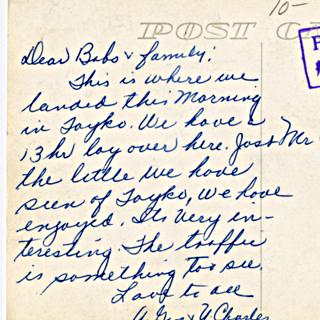 10-
POST CA
Dear Babs & family:
This is where we
landed this morning
in Toyko. We have a
13 hr lay over here. Just Mr
the little we have
seen of Toyko, We have
enjoyed. Its very in-
teresting. The traffic
is something too see.
Love to all
& U. Charles